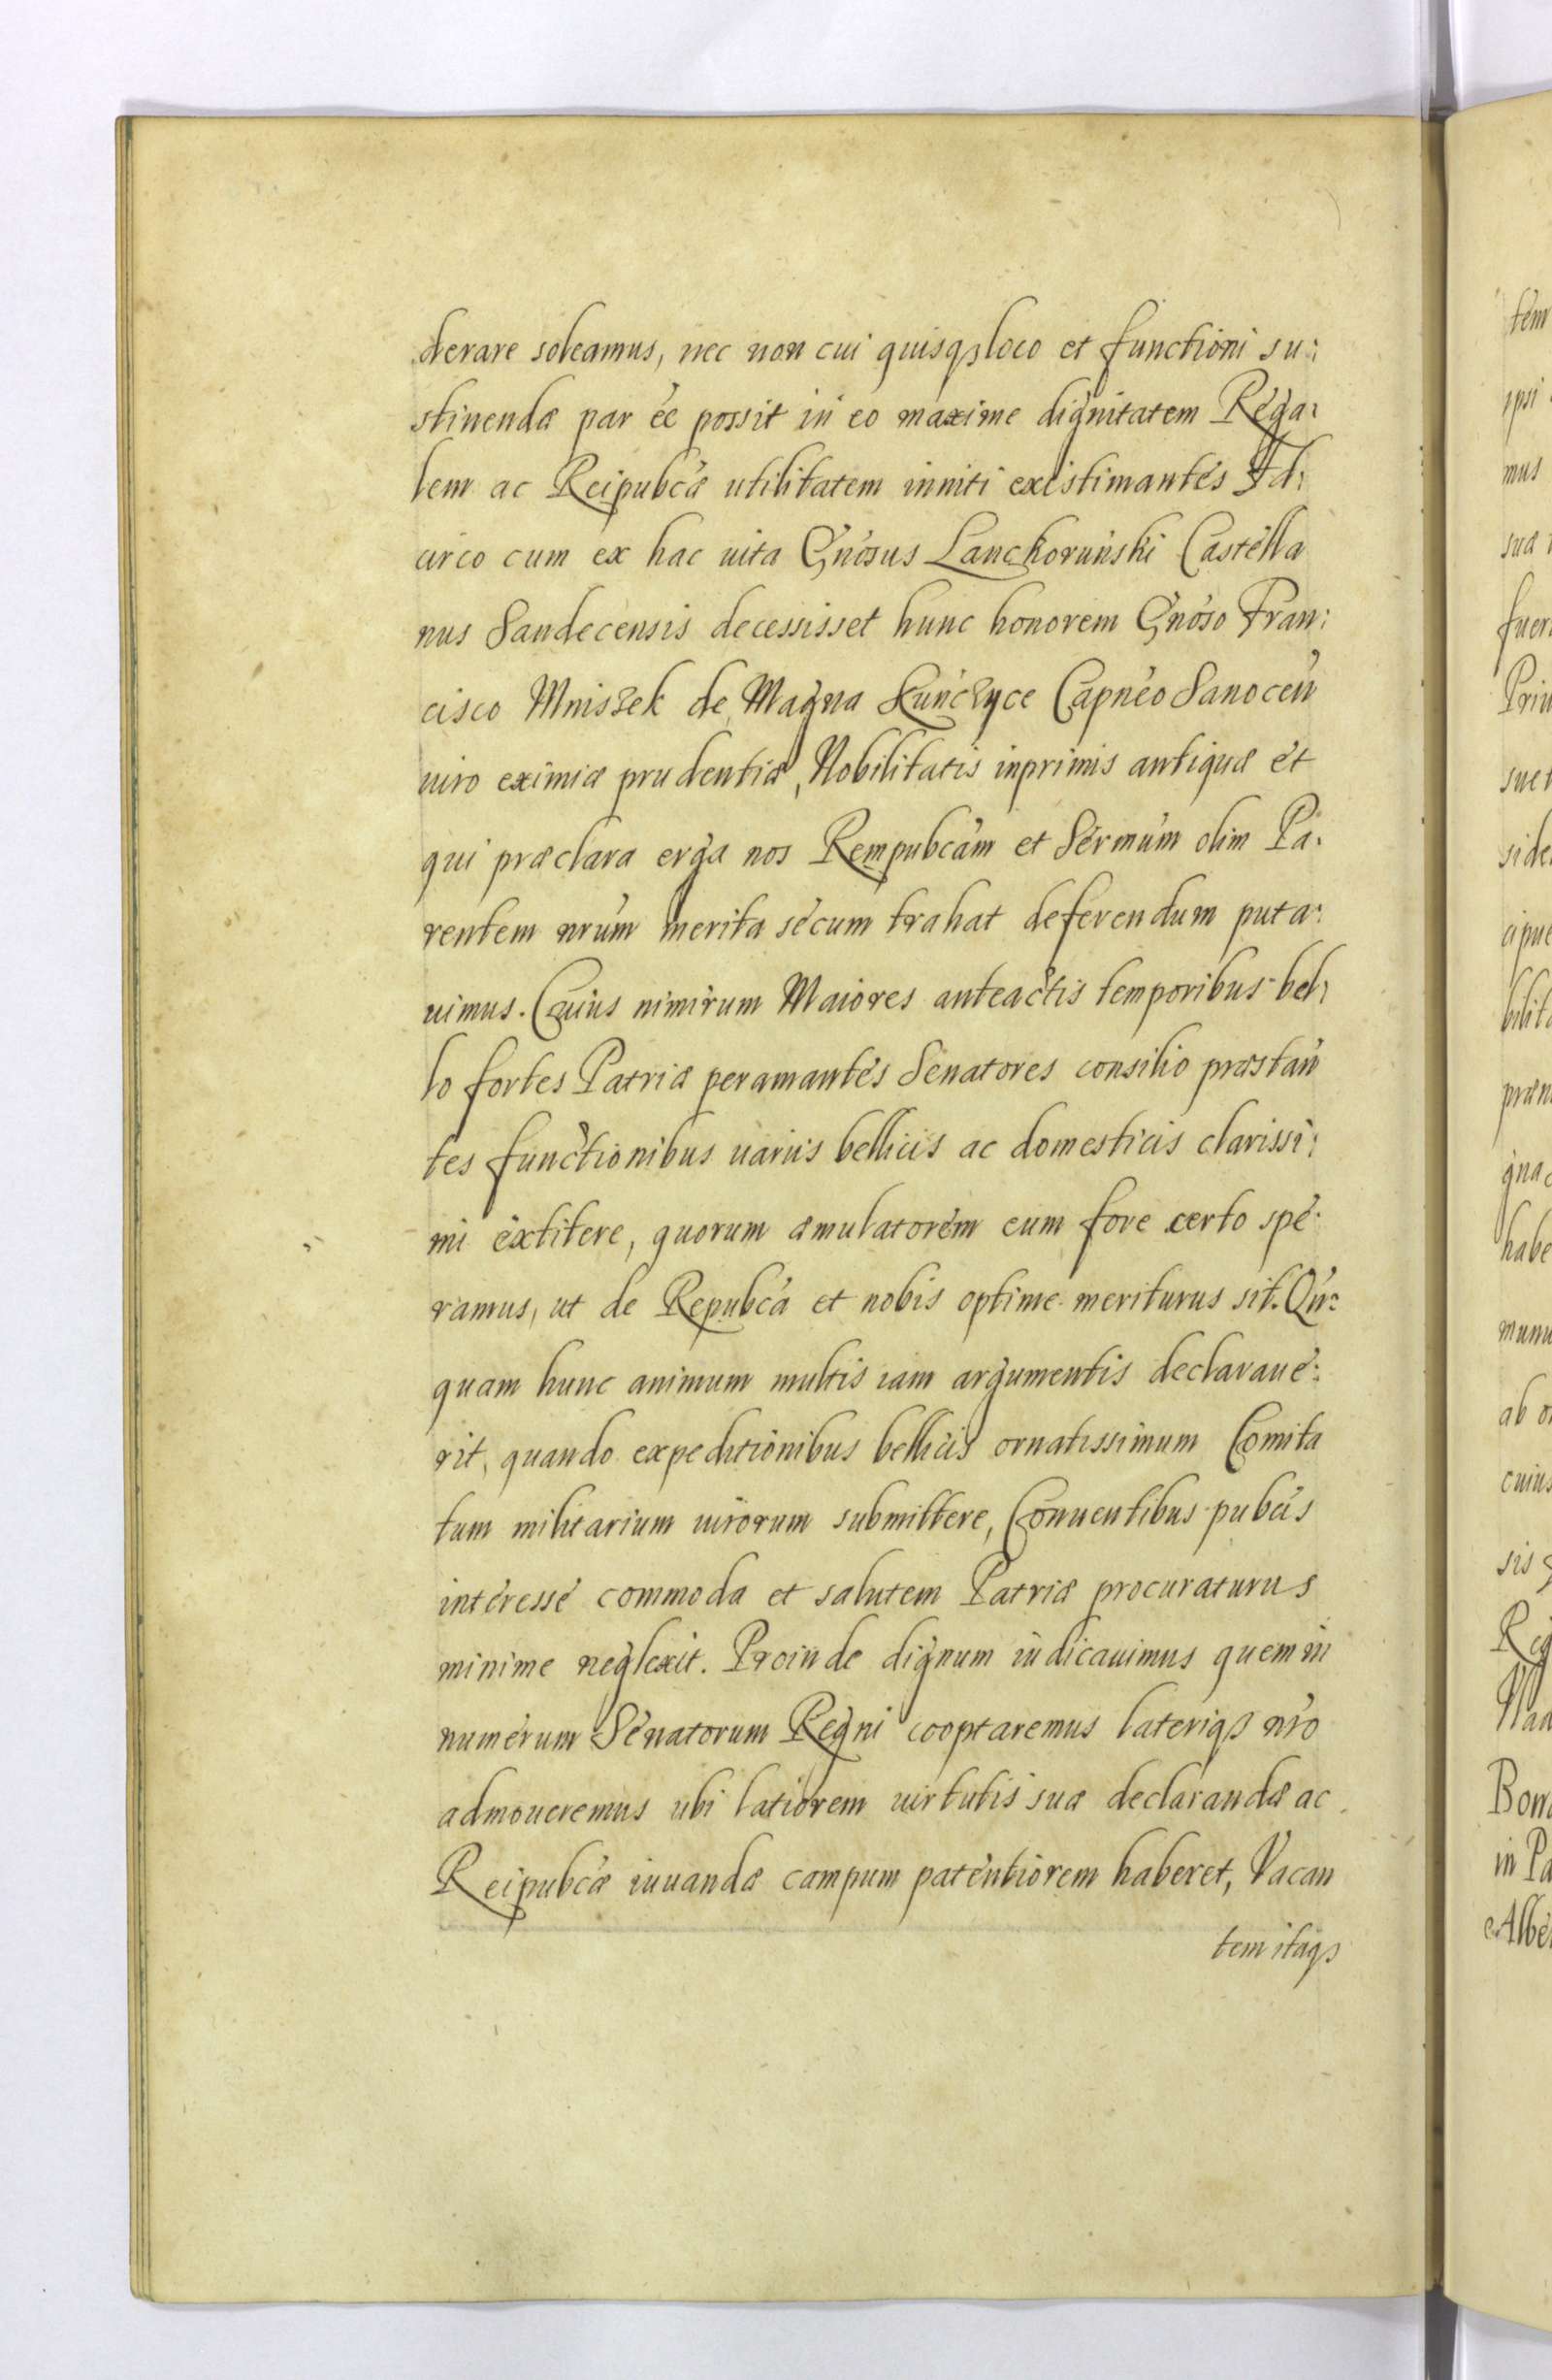 derare soleamus, nec non cui quisqꝫ loco et functioni su:
stinendæ par eē possit in eo maxime dignitatem Rega:
lem ac Reipubcæ utilitatem inniti existimantes Id:
circo cum ex hac uita Gnosus Lanckoruński Castella
nus Sandecensis decessisset hunc honorem Gnoso Fran:
cisco Mniszek de Magna Kunczyce Capneo Sanocen
uiro eximiæ prudentiæ, Nobilitatis inprimis antiquæ et
qui præclara erga nos Rempubcam et Sermum olim Pa:
rentem nrum merita secum trahat deferendum puta:
uimus. Cuius nimirum Maiores anteactis temporibus bel:
lo fortes Patriæ peramantes Senatores consilio præstan
tes functionibus uariis bellicis ac domesticis clarissi:
mi extitere, quorum æmulatorem eum fore certo spe:
ramus, ut de Repubca et nobis optime meriturus sit. Qn:
quam hunc animum multis iam argumentis declaraue:
rit, quando expeditionibus bellicis ornatissimum Comita
tum militarium uirorum submittere, Conuentibus pubcis
interesse commoda et salutem Patriæ procuraturus
minime neglexit. Proinde dignum iudicauimus quem in
numerum Senatorum Regni cooptaremus lateriqꝫ nro
admoueremus ubi latiorem uirtutis suæ declarandæ ac
Reipubcæ iuuandæ campum patentiorem haberet, Vacan
tem itaqꝫ